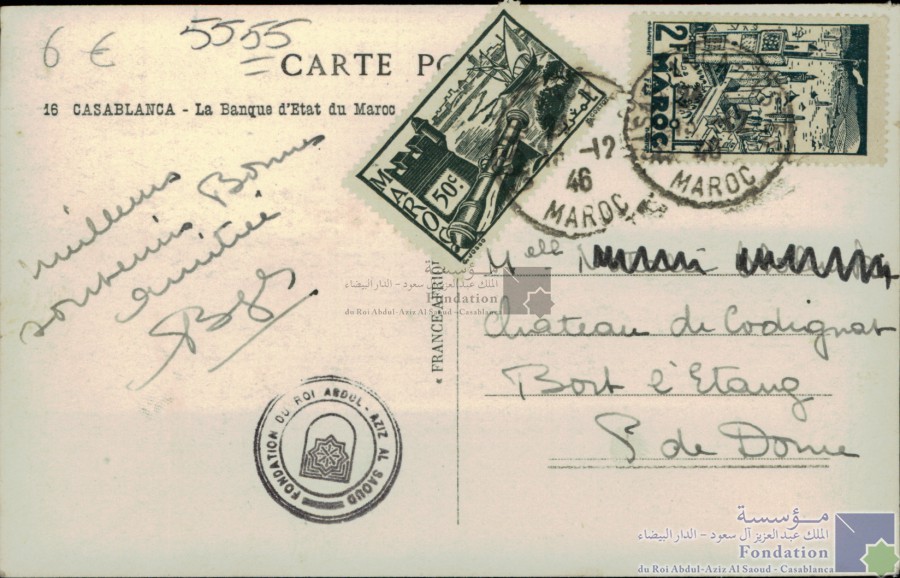 6 €
5555
CARTE PO
16 CASABLANCA - La Banque d'Etat du Maroc
meilleurs
souvenirs Bonnes
amitié
MAROC
50c
المغرب
2F MAROC
-12
46
MAROC
46
MAROC
« FRANCE-AFRIQU
Melle
Château de Codignat
Bort l'Etang
P. de Dome
FONDATION DU ROI ABDUL-AZIZ AL SAOUD
مؤسسة
الملك عبد العزيز آل سعود - الدار البيضاء
Fondation
du Roi Abdul-Aziz Al Saoud - Casablanca
مؤسسة
الملك عبد العزيز آل سعود - الدار البيضاء
Fondation
du Roi Abdul-Aziz Al Saoud - Casablanca